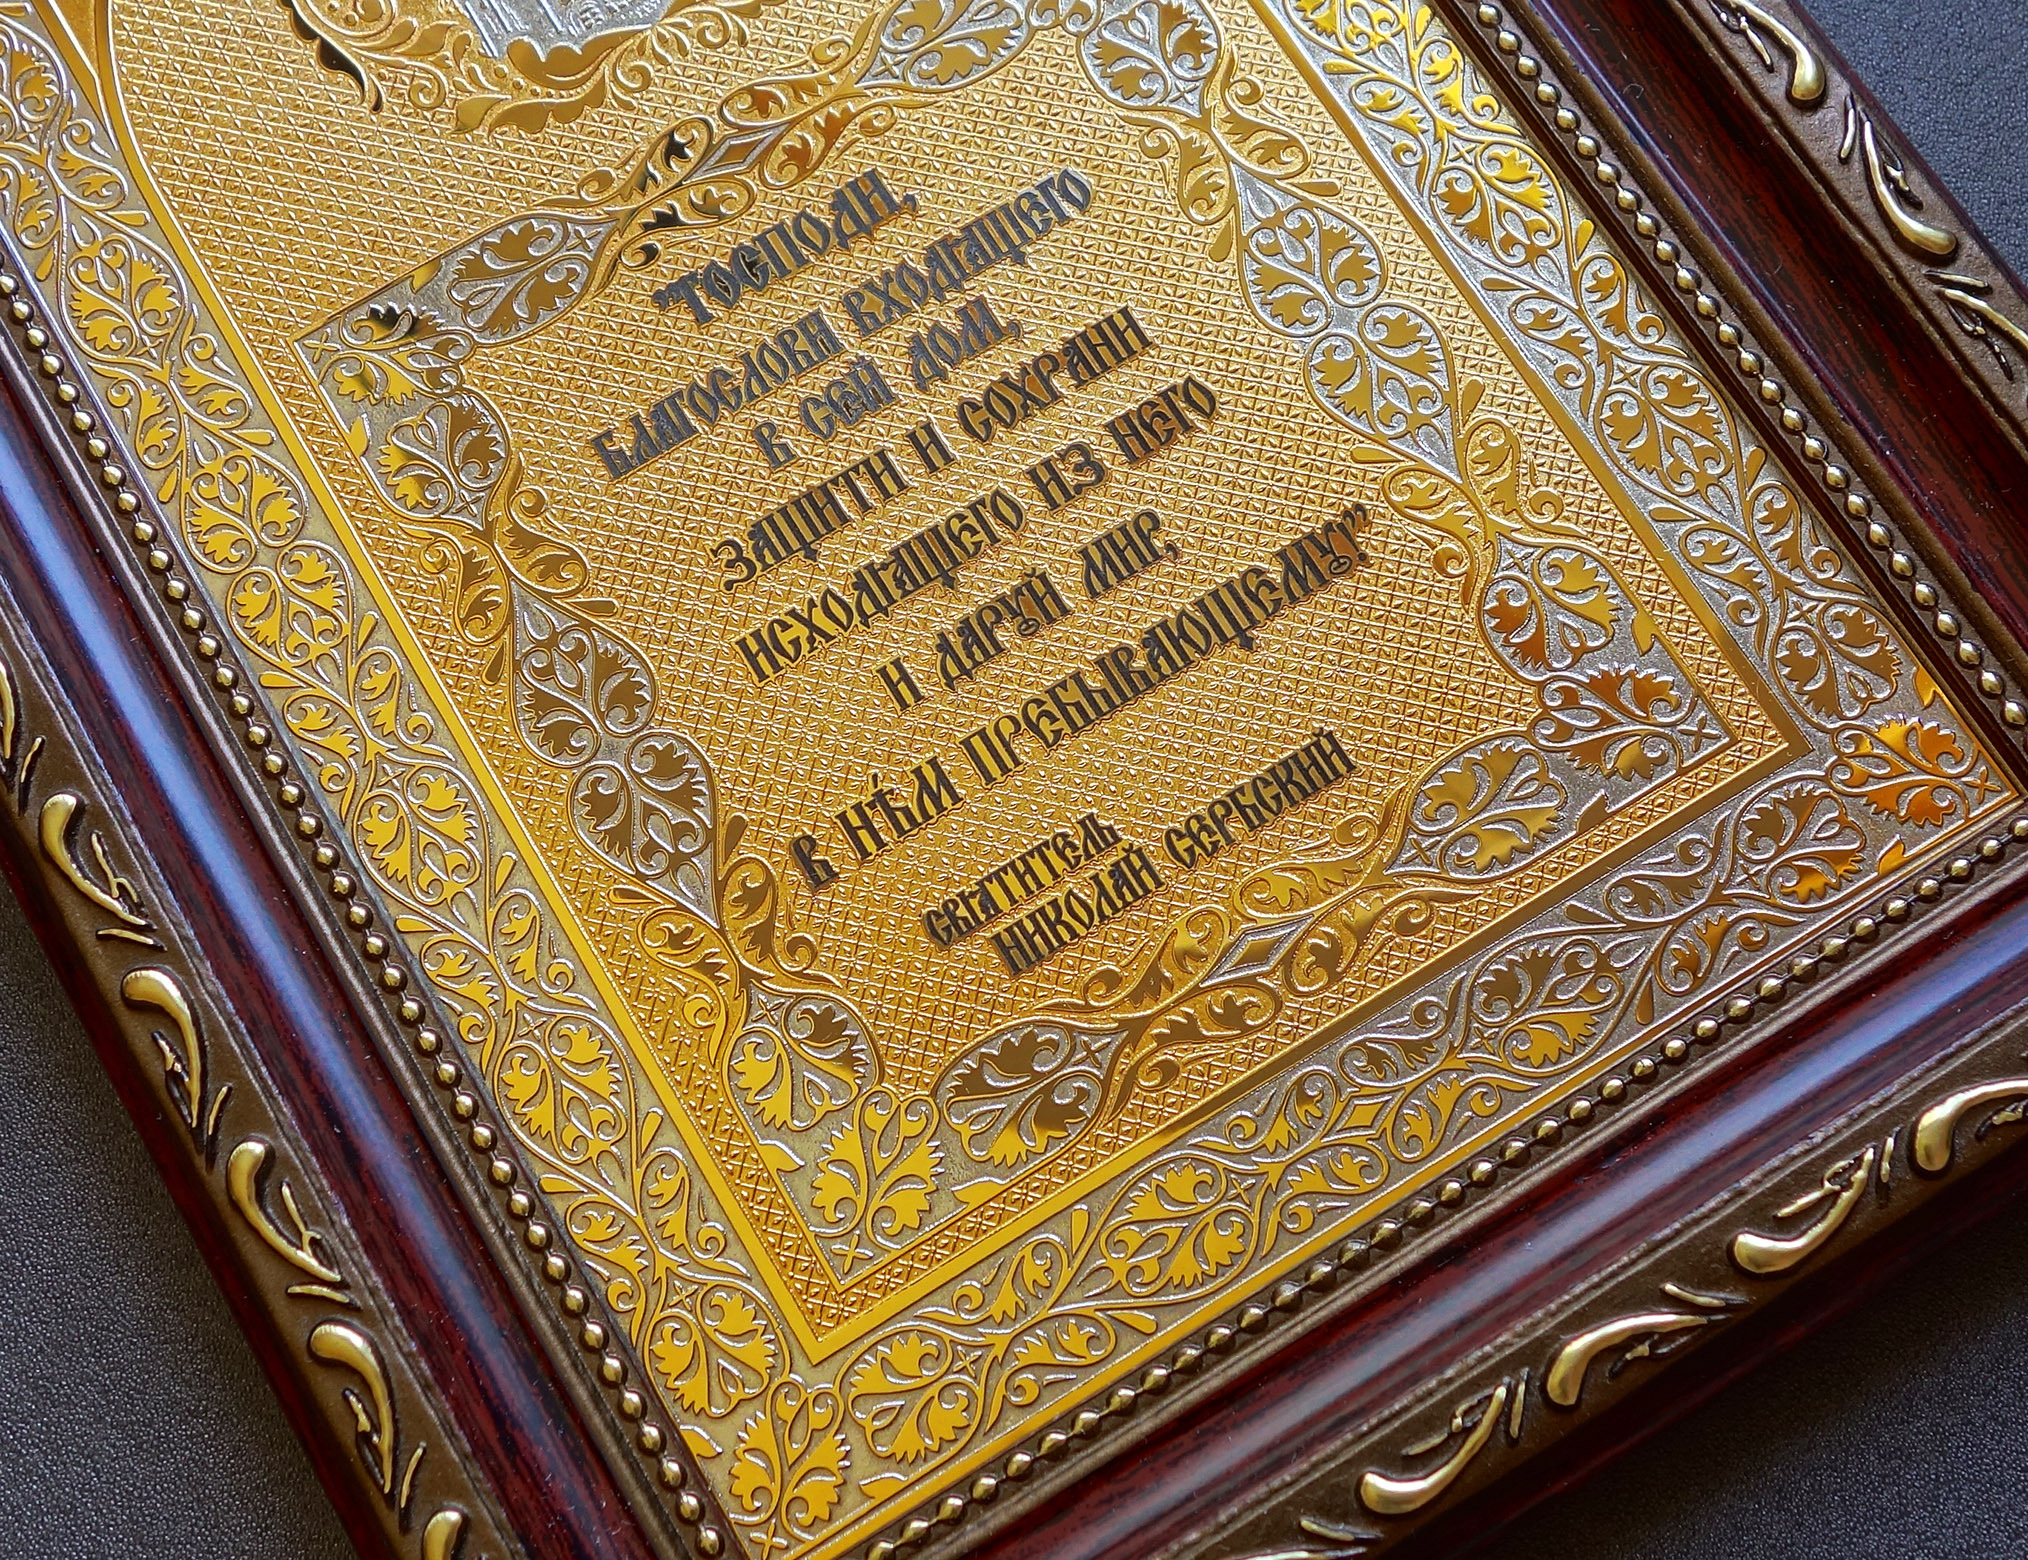 "Господи,
благослови входящего
в сей дом,
защити и сохрани
исходящего из него
и даруй мир,
в нём пребывающему!"
Святитель
Николай Сербский